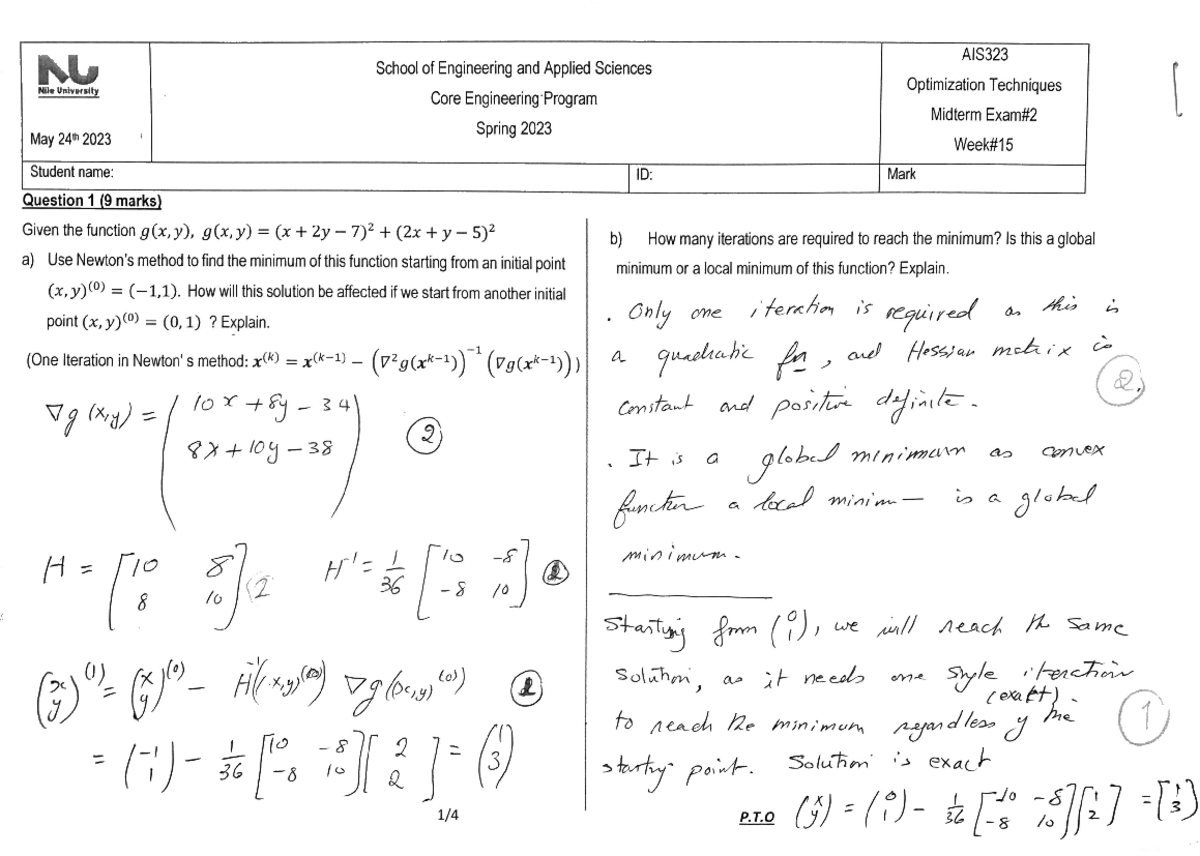 NU
Nile University
May 24th 2023
School of Engineering and Applied Sciences
Core Engineering Program
Spring 2023
AIS323
Optimization Techniques
Midterm Exam#2
Week#15
Student name:
ID:
Mark
Question 1 (9 marks)
Given the function g(x, y), g(x, y) = (x + 2y − 7)² + (2x + y − 5)²
a) Use Newton's method to find the minimum of this function starting from an initial point
(x, y)⁽⁰⁾ = (−1,1). How will this solution be affected if we start from another initial
point (x, y)⁽⁰⁾ = (0, 1) ? Explain.
(One Iteration in Newton' s method: x⁽ᵏ⁾ = x⁽ᵏ⁻¹⁾ − (∇²g(xᵏ⁻¹))⁻¹ (∇g(xᵏ⁻¹)))
∇g(x,y) = ( 10x + 8y − 34
8x + 10y − 38 ) 2
H = [10 8
8 10] 2 H⁻¹ = 1/36 [10 −8
−8 10]
(x y)⁽¹⁾ = (x y)⁽⁰⁾ − H⁻¹(x,y)⁽⁰⁾) ∇g(x,y)⁽⁰⁾)
= (−1 1) − 1/36 [10 −8
−8 10] [2 2] = (1 3)
1/4
b) How many iterations are required to reach the minimum? Is this a global
minimum or a local minimum of this function? Explain.
. Only one iteration is required as this is
a quadratic fn, and Hessian matrix is
constant and positive definite. 2.
. It is a global minimum as convex
function a local minim— is a global
minimum.
Starting from (0 1), we will reach the same
solution, as it needs one iteration
(exact).
to reach the minimum regardless of the 1
starting point. Solution is exact
P.T.O (x y) = (0 1) − 1/36 [10 −8
−8 10] [ 2] = [1 3]